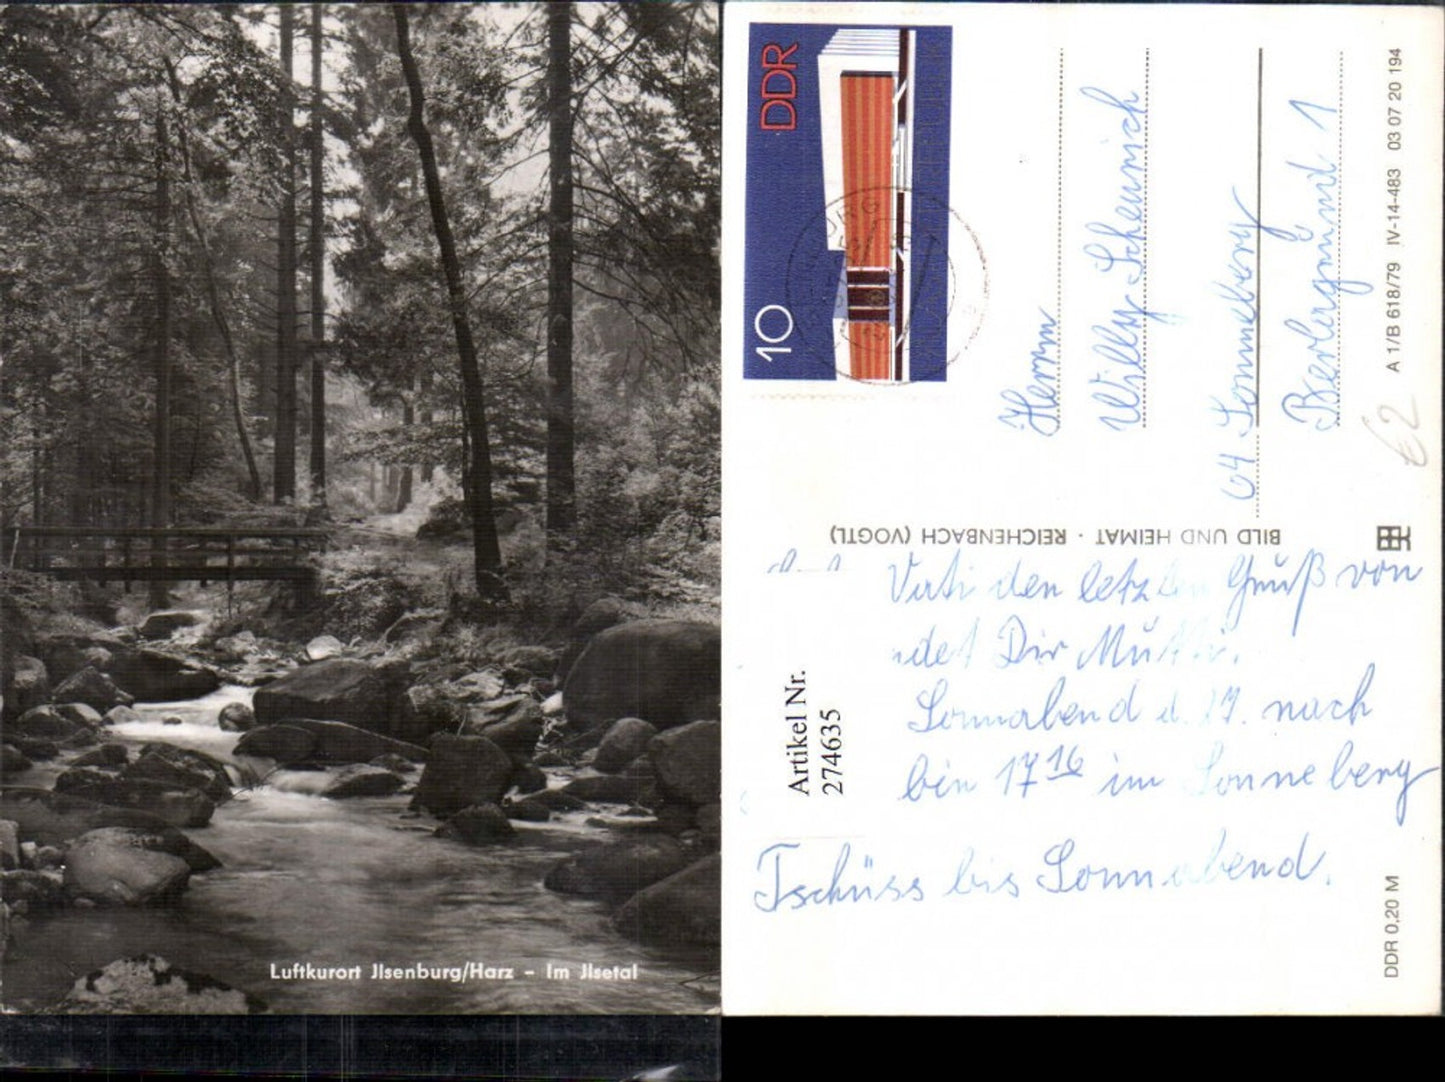 Luftkurort Jlsenburg/Harz – Im Jlsetal
DDR
10
Herrn
Willy Scheurich
64 Sonneberg
Berlergründ 1
A 1/B 618/79 IV-14-483 03 07 20 194
€2
BILD UND HEIMAT · REICHENBACH (VOGTL)
Vati den letzten Gruß von
Dir Mutti.
Sonnabend d. 27. nach
bin 17 16 im Sonneberg
Tschüss bis Sonnabend.
Artikel Nr.
2744635
DDR 0,20 M